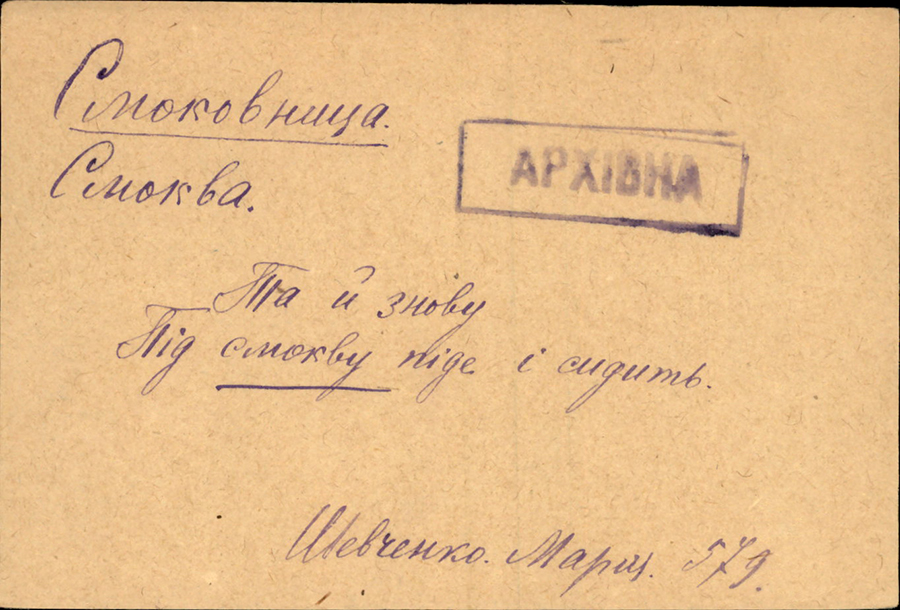 Смоковница.
АРХІВНА
Смоква.
Та й знову
Під смокву піде і сидить.
Шевченко. Марія. 579.